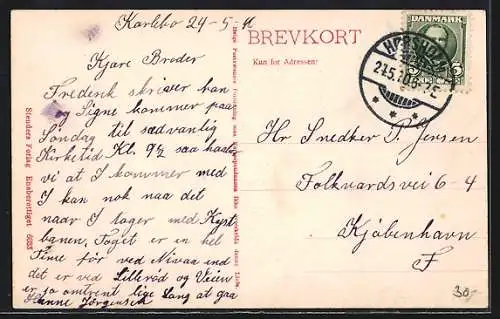 Karlebo 24-5-
Kjære Broder
Frederik skriver han
og Signe kommer paa
Søndag til sædvanlig
Kirketid Kl. 9½ saa haaber
vi at I kommer med
I kan nok naa det
naar I tager med Kyst
banen. Toget er en hel
Time før ved Nivaa end
det er ved Lillerød og Veien
er jo omtrent lige Lang at gaa
Hanne Jørgensen
Stenders Forlag Eneberettiget 6055
BREVKORT
Kun for Adressen:
DANMARK
HØRSHOLM
Hr Snedker P. Jensen
Folkvardsvei 6-4
Kjøbenhavn
F
30,-